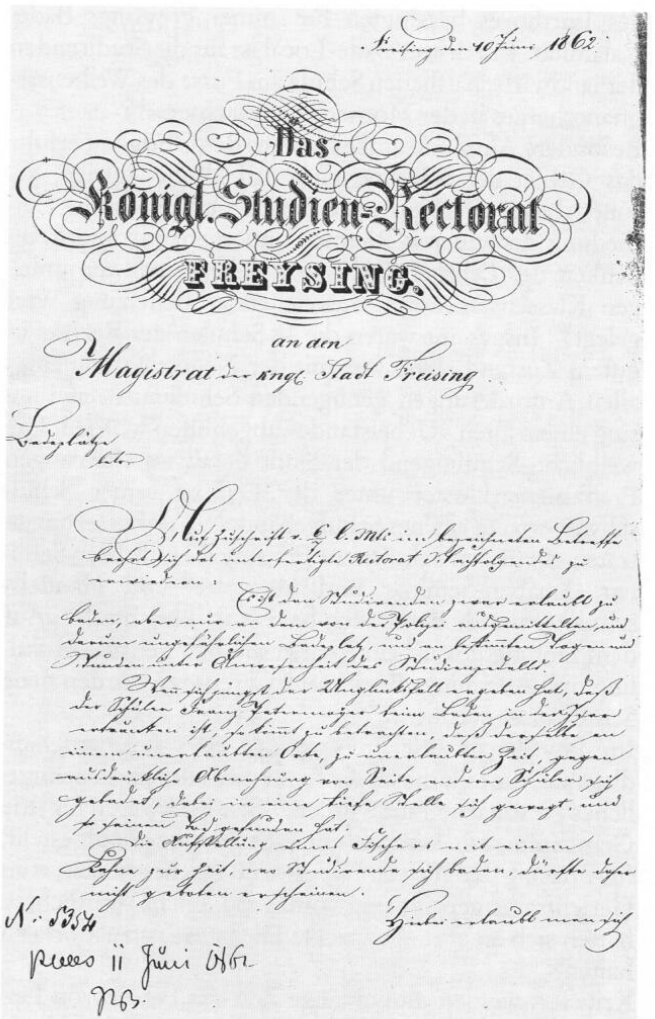 Freising den 10 Juni 1862.
Das
Königl. Studien-Rectorat
FREYSING.
an den
Magistrat der kngl. Stadt Freising
Badeplätze
btr.
Auf Zuschrift v. 6 l. Mts. im bezeichneten Betreffe
beehrt sich das unterfertigte Rectorat Nachfolgendes zu
erwiedern:
Es ist den Studirenden zwar erlaubt zu
baden, aber nur an dem von der Polizei ausgemittelten und
darum ungefährlichen Badeplatz, und an bestimmten Tagen und
Stunden unter Anwesenheit des Studienpedells.
Wenn sich jüngst der Unglücksfall ergeben hat, daß
der Schüler Franz Petermayer beim Baden in der Isar
ertrunken ist, so kömmt zu betrachten, daß derselbe an
einem unerlaubten Orte, zu unerlaubter Zeit, gegen
ausdrückliche Abmahnung von Seite anderer Schüler sich
gebadet, dabei in eine tiefe Stelle sich gewagt, und
so seinen Tod gefunden hat.
Die Aufstellung eines Fischers mit einem
Kahne zur Zeit, wo Studirende sich baden, dürfte daher
nicht geboten erscheinen.
Hiebei erlaubt man sich
N: 5354
praes 11 Juni 1862